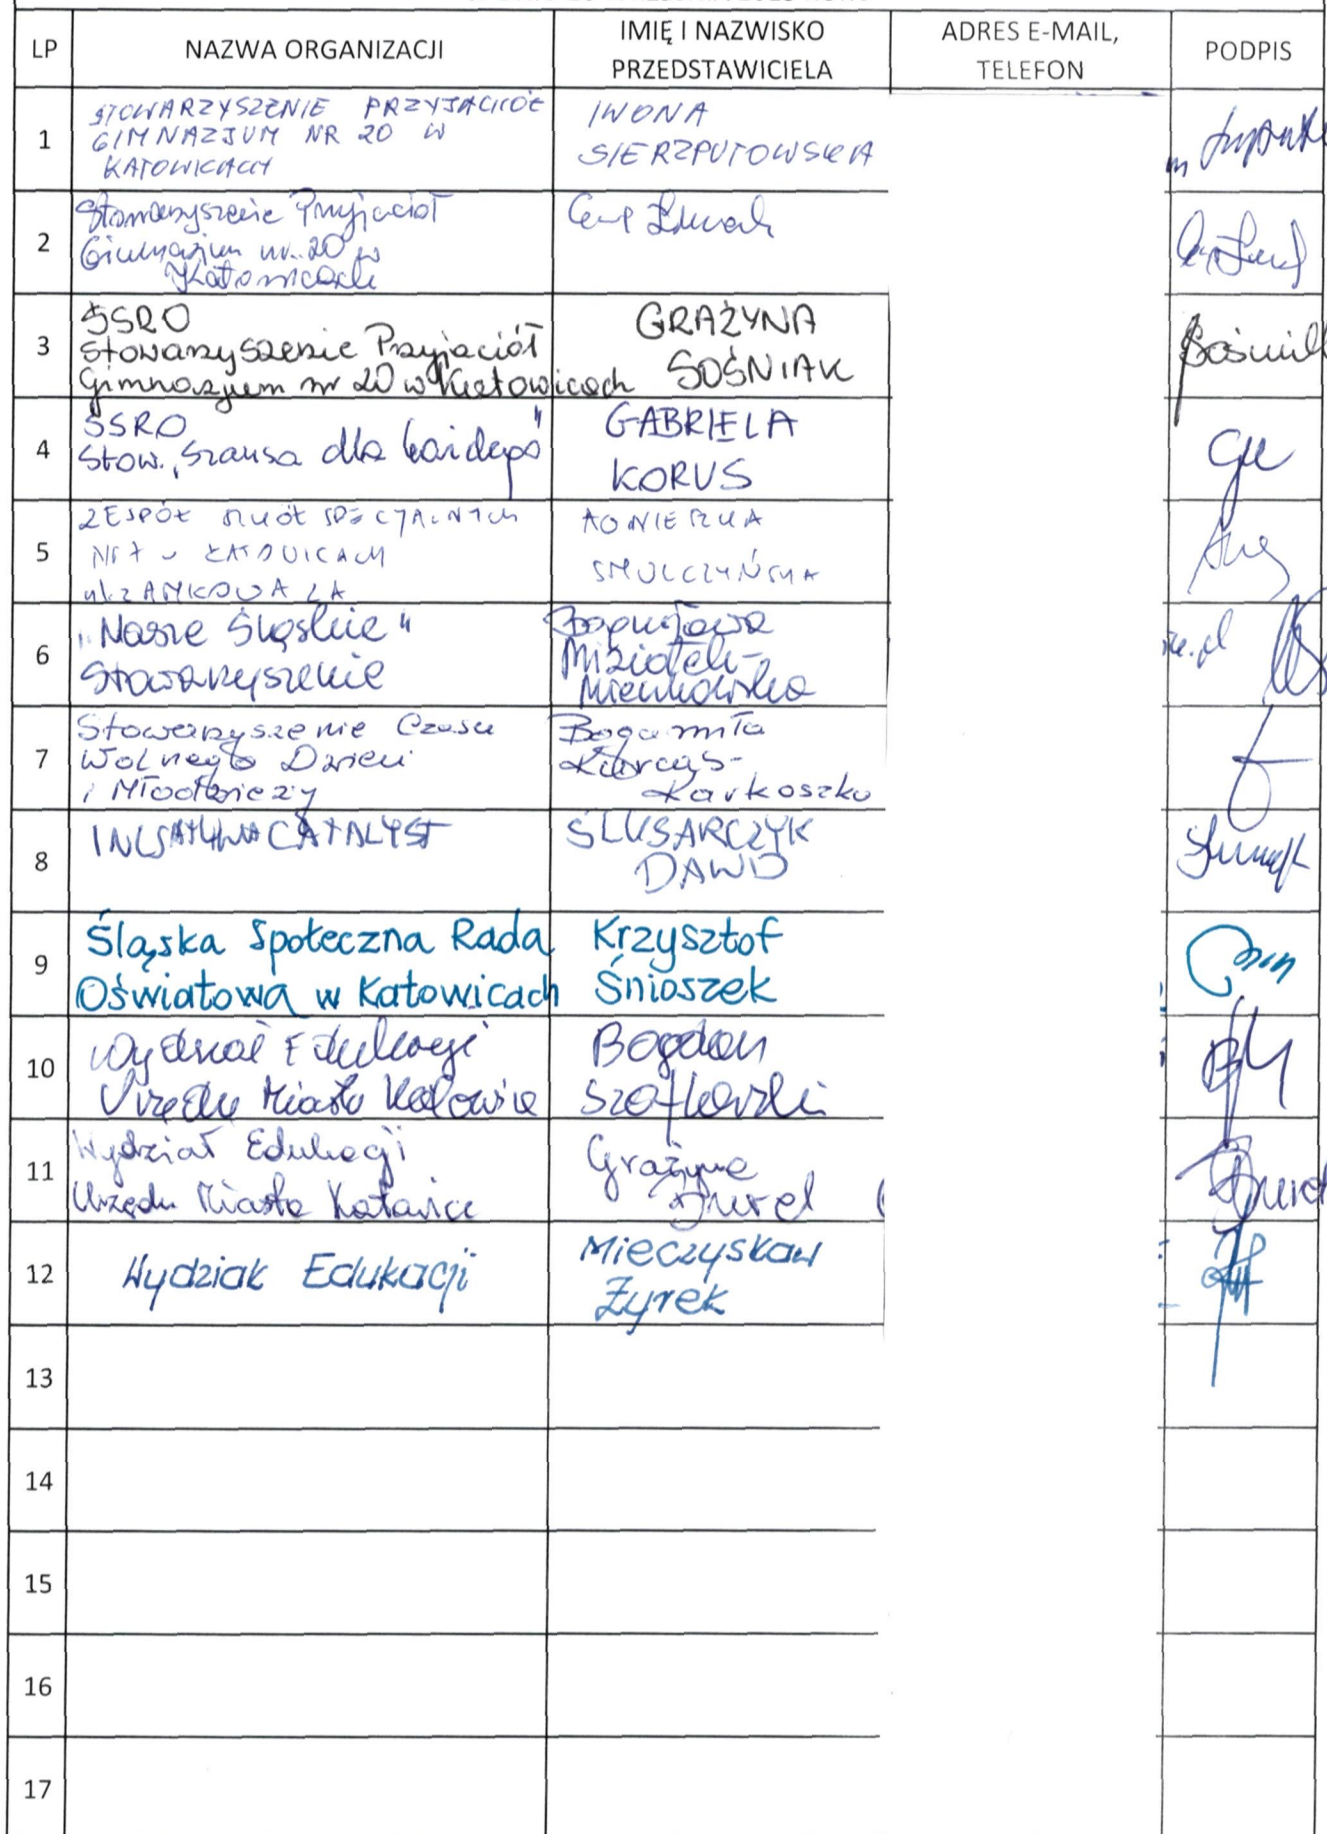 LP NAZWA ORGANIZACJI IMIĘ I NAZWISKO PRZEDSTAWICIELA ADRES E-MAIL, TELEFON PODPIS
1
STOWARZYSZENIE PRZYJACIÓŁ
GIMNAZJUM NR 20 W
KATOWICACH
IWONA
SIERZPUTOWSKA
2
Stowarzyszenie Przyjaciół
Gimnazjum nr. 20 w
Katowicach
3
ŚSRO
Stowarzyszenie Przyjaciół
Gimnazjum nr 20 w Katowicach
GRAŻYNA
SOŚNIAK
4
ŚSRO
Stow. „Szansa dla każdego"
GABRIELA
KORUS
5
ZESPÓŁ SZKÓŁ SPECJALNYCH
NR 7 w KATOWICACH
ul. ZAMKOWA 2A
AGNIESZKA
SMOLCZYŃSKA
6
„Nasze Śląskie"
Stowarzyszenie
Miziołek-
7
Stowarzyszenie Czasu
Wolnego Dzieci
i Młodzieży
Bogumiła
Karkoszka
8
CATALYST
ŚLUSARCZYK
DAWID
9
Śląska Społeczna Rada
Oświatowa w Katowicach
Krzysztof
Śnioszek
10
Wydział Edukacji
Urzędu Miasta Katowice
Bogdan
11
Wydział Edukacji
Urzędu Miasta Katowice
Grażyna
Burek
12
Wydział Edukacji
Mieczysław
Żyrek
13
14
15
16
17